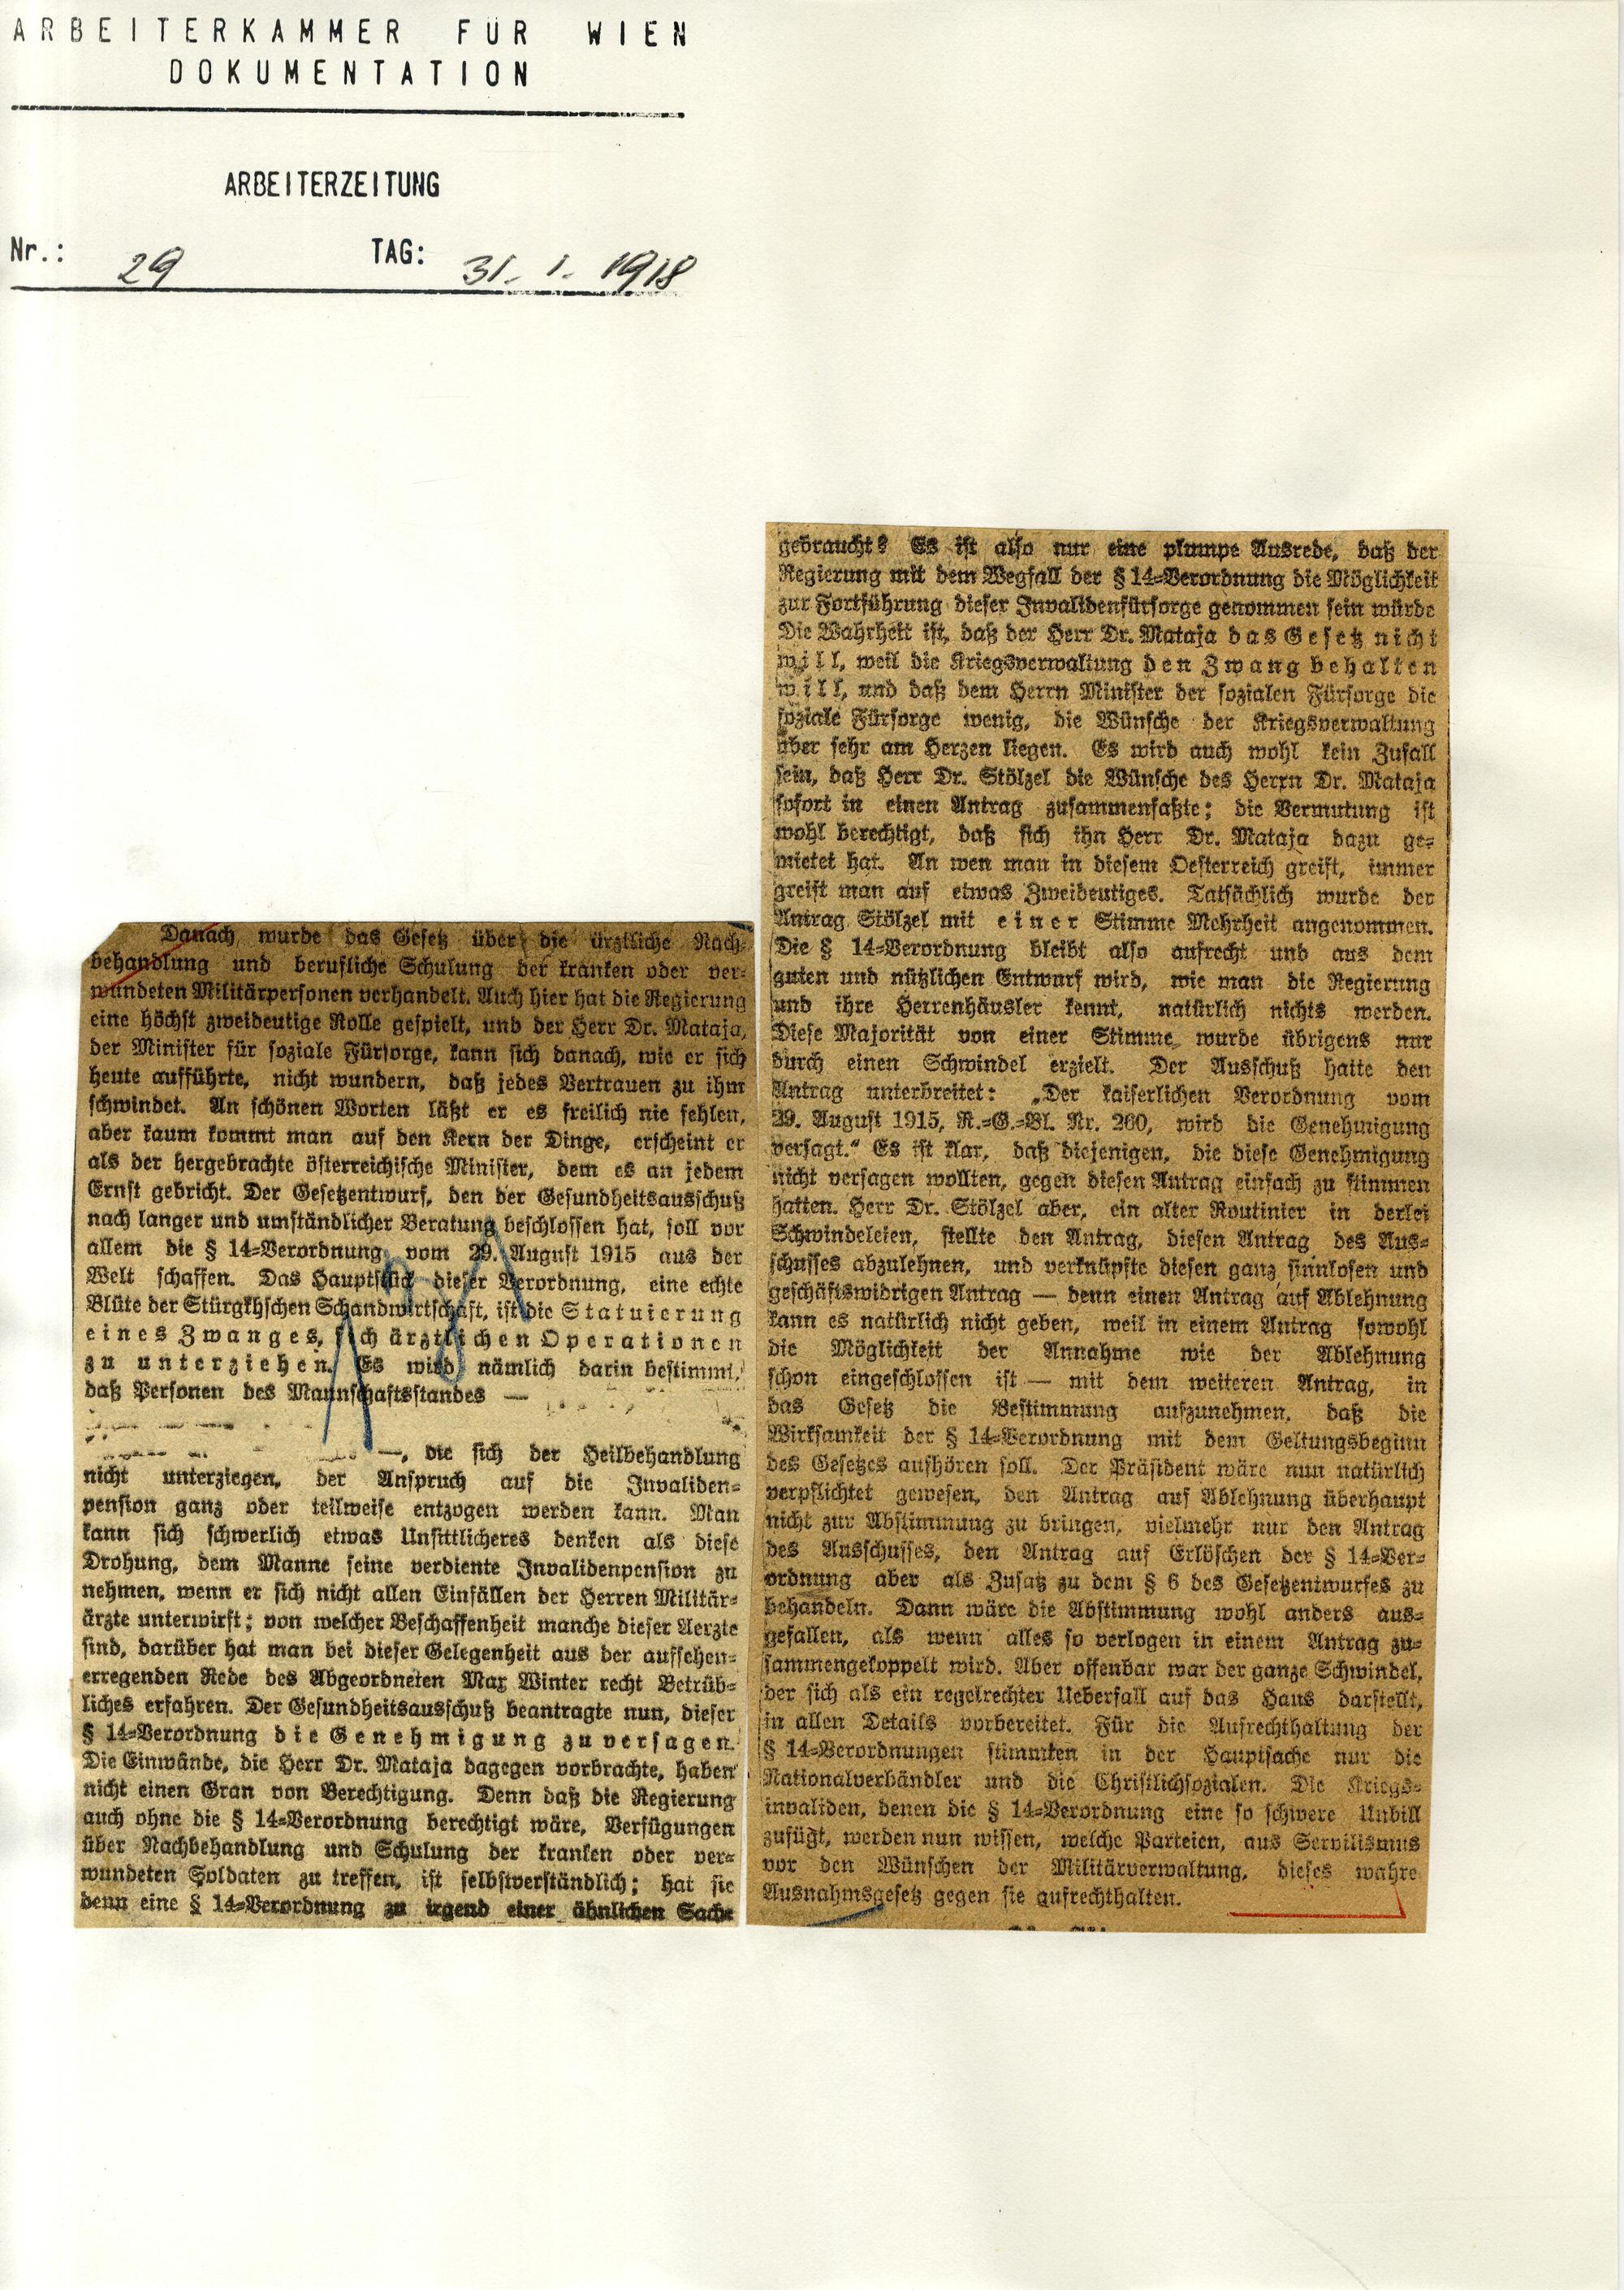 ARBEITERKAMMER FÜR WIEN
DOKUMENTATION
ARBEITERZEITUNG
Nr.: 29 TAG: 31. 1. 1918
Danach wurde das Gesetz über die ärztliche Nach-
behandlung und berufliche Schulung der kranken oder ver-
wundeten Militärpersonen verhandelt. Auch hier hat die Regierung
eine höchst zweideutige Rolle gespielt, und der Herr Dr. Mataja,
der Minister für soziale Fürsorge, kann sich danach, wie er sich
heute aufführte, nicht wundern, daß jedes Vertrauen zu ihm
schwindet. An schönen Worten läßt er es freilich nie fehlen,
aber kaum kommt man auf den Kern der Dinge, erscheint er
als der hergebrachte österreichische Minister, dem es an jedem
Ernst gebricht. Der Gesetzentwurf, den der Gesundheitsausschuß
nach langer und umständlicher Beratung beschlossen hat, soll vor
allem die § 14=Verordnung vom 29. August 1915 aus der
Welt schaffen. Das Hauptstück dieser Verordnung, eine echte
Blüte der Stürgkhschen Schandwirtschaft, ist die Statuierung
eines Zwanges, sich ärztlichen Operationen
zu unterziehen. Es wird nämlich darin bestimmt,
daß Personen des Mannschaftsstandes —
—, die sich der Heilbehandlung
nicht unterziegen, der Anspruch auf die Invaliden=
pension ganz oder teilweise entzogen werden kann. Man
kann sich schwerlich etwas Unsittlicheres denken als diese
Drohung, dem Manne seine verdiente Invalidenpension zu
nehmen, wenn er sich nicht allen Einfällen der Herren Militär=
ärzte unterwirft; von welcher Beschaffenheit manche dieser Aerzte
sind, darüber hat man bei dieser Gelegenheit aus der aufsehen=
erregenden Rede des Abgeordneten Max Winter recht Betrüb=
liches erfahren. Der Gesundheitsausschuß beantragte nun, dieser
§ 14=Verordnung die Genehmigung zu versagen.
Die Einwände, die Herr Dr. Mataja dagegen vorbrachte, haben
nicht einen Gran von Berechtigung. Denn daß die Regierung
auch ohne die § 14=Verordnung berechtigt wäre, Verfügungen
über Nachbehandlung und Schulung der kranken oder ver=
wundeten Soldaten zu treffen, ist selbstverständlich; hat sie
denn eine § 14=Verordnung zu irgend einer ähnlichen Sache
gebraucht? Es ist also nur eine plumpe Ausrede, daß der
Regierung mit dem Wegfall der § 14=Verordnung die Möglichkeit
zur Fortführung dieser Invalidenfürsorge genommen sein würde
Die Wahrheit ist, daß der Herr Dr. Mataja das Gesetz nicht
will, weil die Kriegsverwaltung den Zwang behalten
will, und daß dem Herrn Minister der sozialen Fürsorge die
soziale Fürsorge wenig, die Wünsche der Kriegsverwaltung
aber sehr am Herzen liegen. Es wird auch wohl kein Zufall
sein, daß Herr Dr. Stölzel die Wünsche des Herrn Dr. Mataja
sofort in einen Antrag zusammenfaßte; die Vermutung ist
wohl berechtigt, daß sich ihn Herr Dr. Mataja dazu ge=
mietet hat. An wen man in diesem Oesterreich greift, immer
greift man auf etwas Zweideutiges. Tatsächlich wurde der
Antrag Stölzel mit einer Stimme Mehrheit angenommen.
Die § 14=Verordnung bleibt also aufrecht und aus dem
guten und nützlichen Entwurf wird, wie man die Regierung
und ihre Herrenhäusler kennt, natürlich nichts werden.
Diese Majorität von einer Stimme wurde übrigens nur
durch einen Schwindel erzielt. Der Ausschuß hatte den
Antrag unterbreitet: „Der kaiserlichen Verordnung vom
29. August 1915, R.=G.=Bl. Nr. 260, wird die Genehmigung
versagt.“ Es ist klar, daß diejenigen, die diese Genehmigung
nicht versagen wollten, gegen diesen Antrag einfach zu stimmen
hatten. Herr Dr. Stölzel aber, ein alter Routinier in derlei
Schwindeleien, stellte den Antrag, diesen Antrag des Aus=
schusses abzulehnen, und verknüpfte diesen ganz sinnlosen und
geschäftswidrigen Antrag — denn einen Antrag auf Ablehnung
kann es natürlich nicht geben, weil in einem Antrag sowohl
die Möglichkeit der Annahme wie der Ablehnung
schon eingeschlossen ist — mit dem weiteren Antrag, in
das Gesetz die Bestimmung aufzunehmen, daß die
Wirksamkeit der § 14=Verordnung mit dem Geltungsbeginn
des Gesetzes aufhören soll. Der Präsident wäre nun natürlich
verpflichtet gewesen, den Antrag auf Ablehnung überhaupt
nicht zur Abstimmung zu bringen, vielmehr nur den Antrag
des Ausschusses, den Antrag auf Erlöschen der § 14=Ver=
ordnung aber als Zusatz zu dem § 6 des Gesetzentwurfes zu
behandeln. Dann wäre die Abstimmung wohl anders aus=
gefallen, als wenn alles so verlogen in einem Antrag zu=
sammengekoppelt wird. Aber offenbar war der ganze Schwindel,
der sich als ein regelrechter Ueberfall auf das Haus darstellt,
in allen Details vorbereitet. Für die Aufrechthaltung der
§ 14=Verordnungen stimmten in der Hauptsache nur die
Nationalverbändler und die Christlichsozialen. Die Kriegs=
invaliden, denen die § 14=Verordnung eine so schwere Unbill
zufügt, werden nun wissen, welche Parteien, aus Servilismus
vor den Wünschen der Militärverwaltung, dieses wahre
Ausnahmsgesetz gegen sie aufrechthalten.